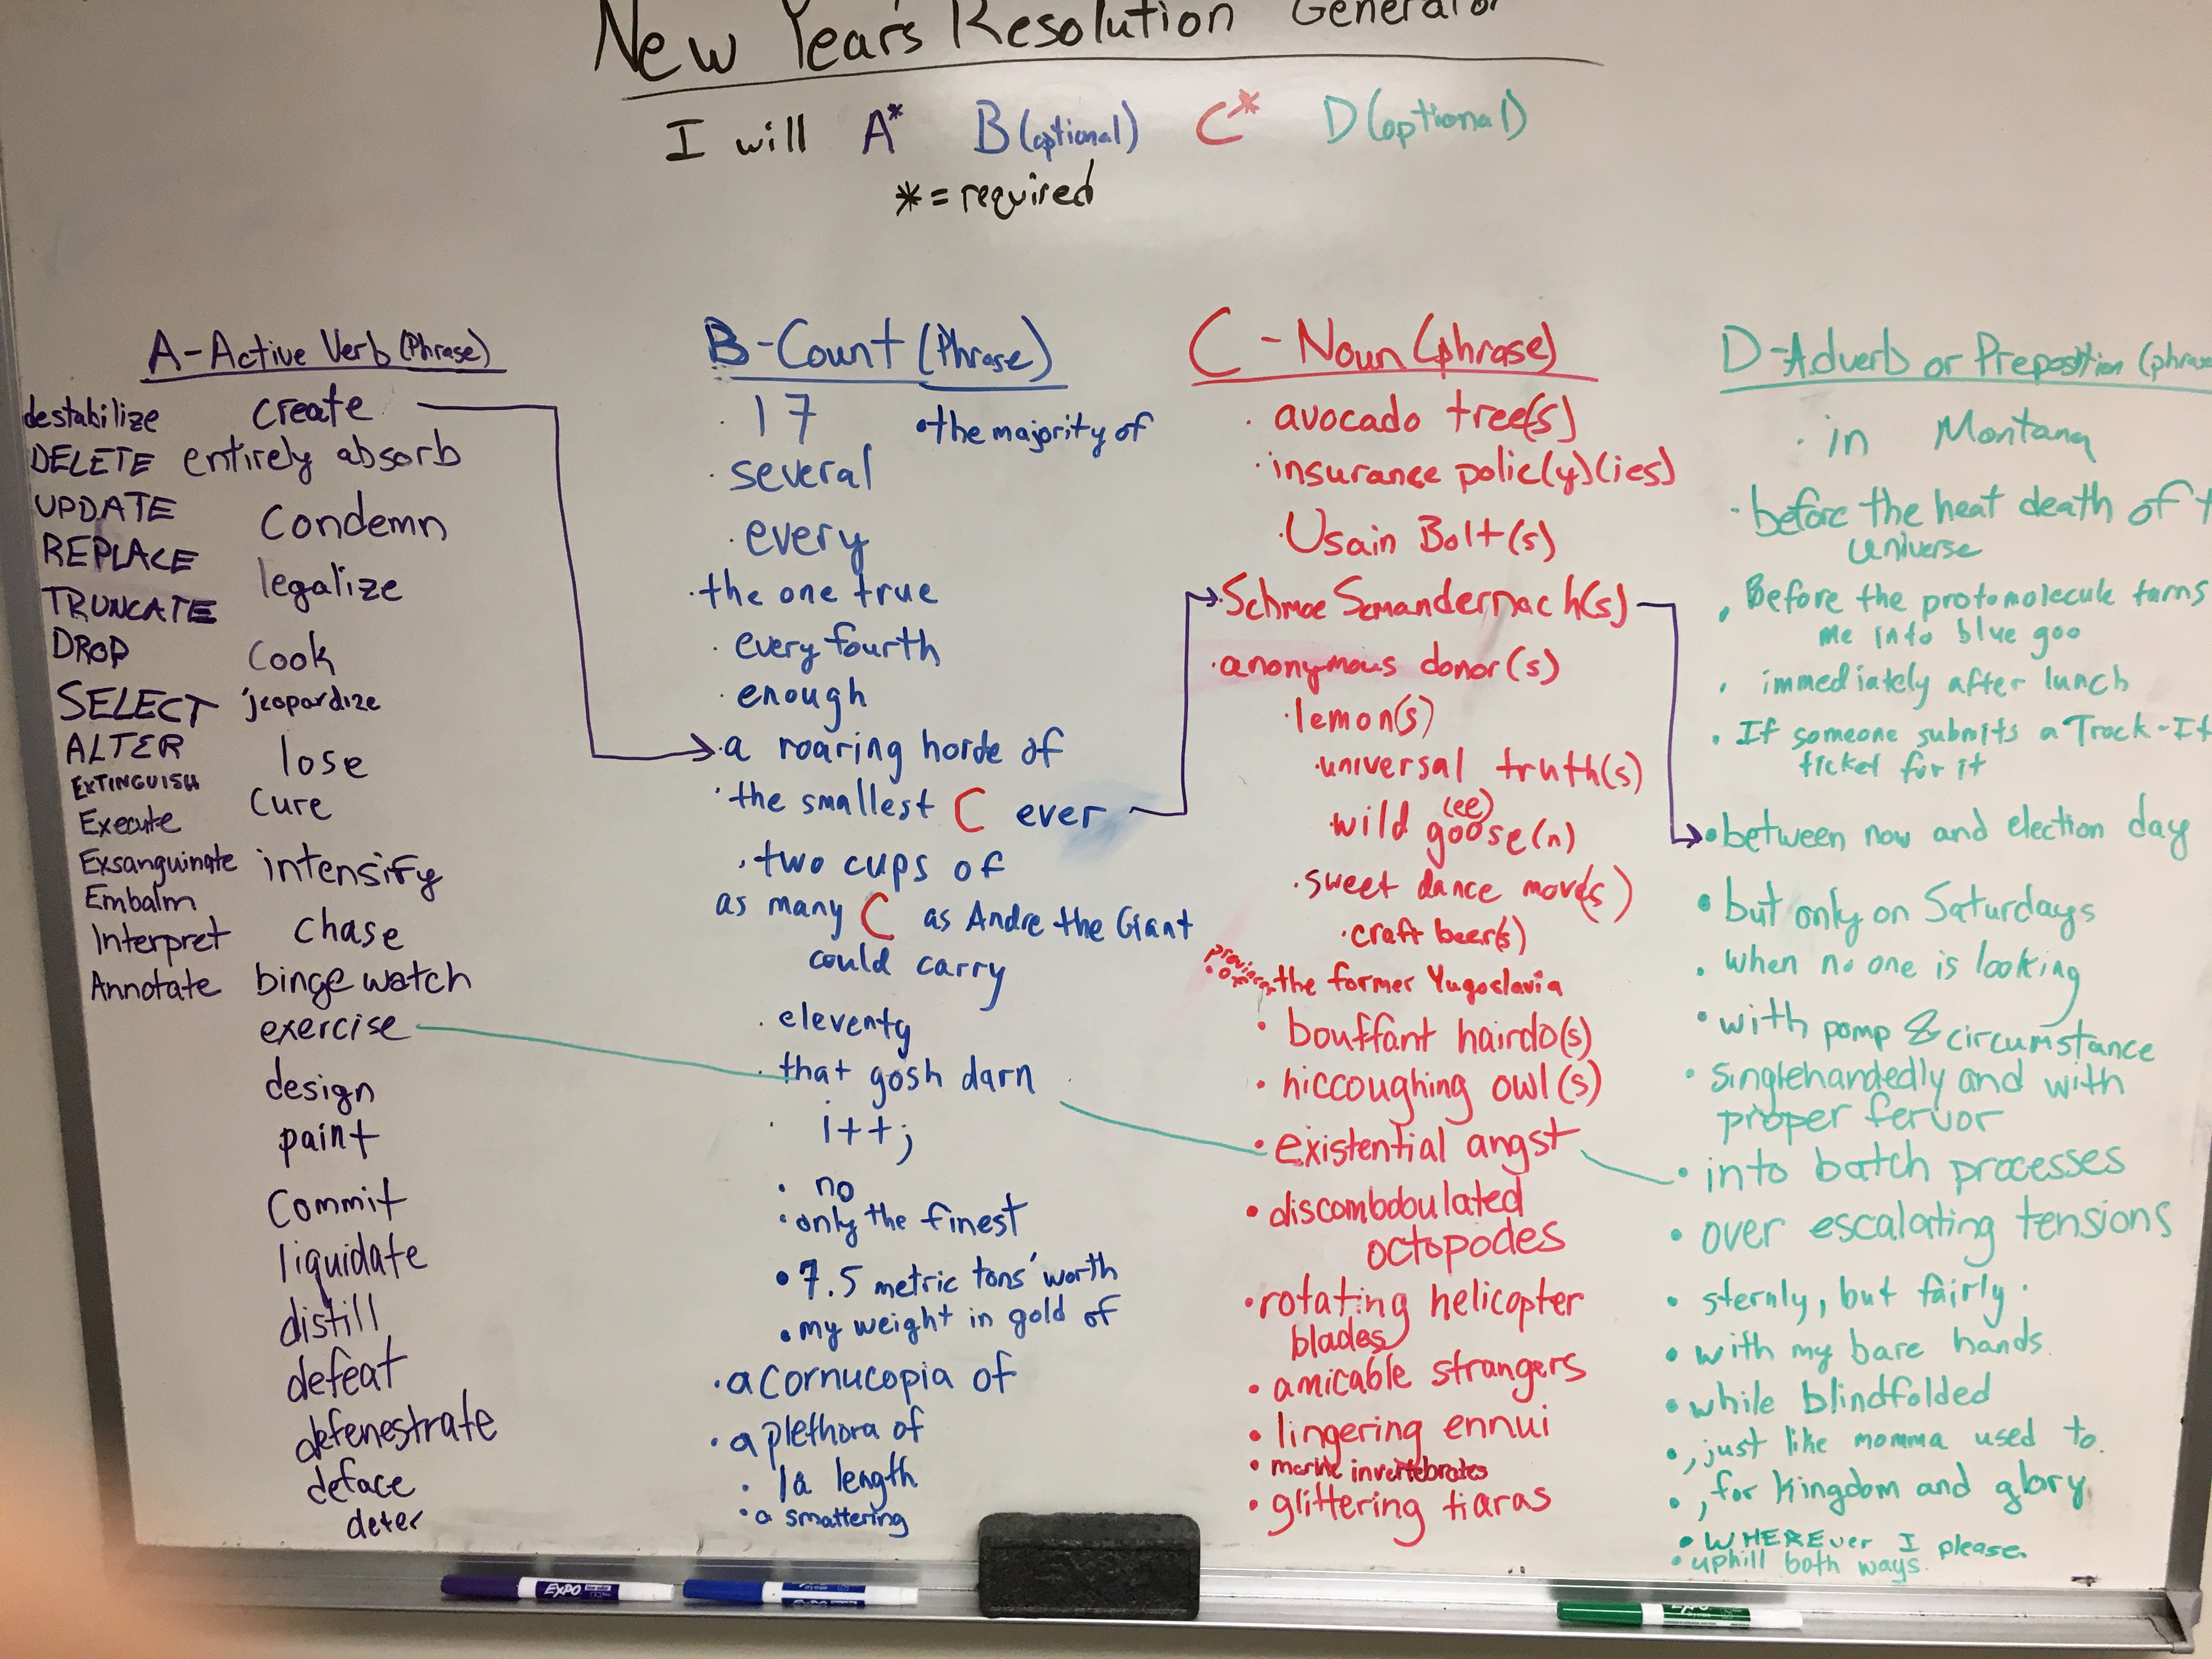 New Year's Resolution Generator
I will A* B(optional) C* D(optional)
*=required
A-Active Verb (Phrase)
destabilize
DELETE
UPDATE
REPLACE
TRUNCATE
DROP
SELECT
ALTER
EXTINGUISH
Execute
Exsanguinate
Embalm
Interpret
Annotate
create
entirely absorb
Condemn
legalize
Cook
jeopardize
lose
Cure
intensify
chase
binge watch
exercise
design
paint
Commit
liquidate
distill
defeat
defenestrate
deface
deter
B-Count (Phrase)
· 17
• the majority of
· several
· every
· the one true
· every fourth
· enough
· a roaring horde of
· the smallest C ever
· two cups of
as many C as Andre the Giant
could carry
· eleventy
· that gosh darn
· i++;
· no
· only the finest
• 7.5 metric tons' worth
• my weight in gold of
· a cornucopia of
· a plethora of
· 1a length
· a smattering
C - Noun (phrase)
· avocado tree(s)
· insurance polic(y)(ies)
· Usain Bolt(s)
· Schmoe Semandernach(s)
· anonymous donor(s)
· lemon(s)
· universal truth(s)
(ee)
· wild goose(n)
· sweet dance move(s)
· craft beer(s)
the former Yugoslavia
• bouffant hairdo(s)
• hiccoughing owl(s)
• existential angst
• discombobulated
octopodes
• rotating helicopter
blades
• amicable strangers
• lingering ennui
• marine invertebrates
• glittering tiaras
D-Adverb or Preposition (phrase
· in Montana
· before the heat death of t
universe
· Before the protomolecule turns
me into blue goo
· immediately after lunch
· If someone submits a Track-It
ticket for it
• between now and election day
• but only on Saturdays
· when no one is looking
• with pomp & circumstance
• singlehandedly and with
proper fervor
• into batch processes
• over escalating tensions
• sternly, but fairly.
• with my bare hands.
• while blindfolded
• , just like momma used to.
• , for kingdom and glory
• WHEREver I please.
• uphill both ways.
EXPO
EXPO
EXPO